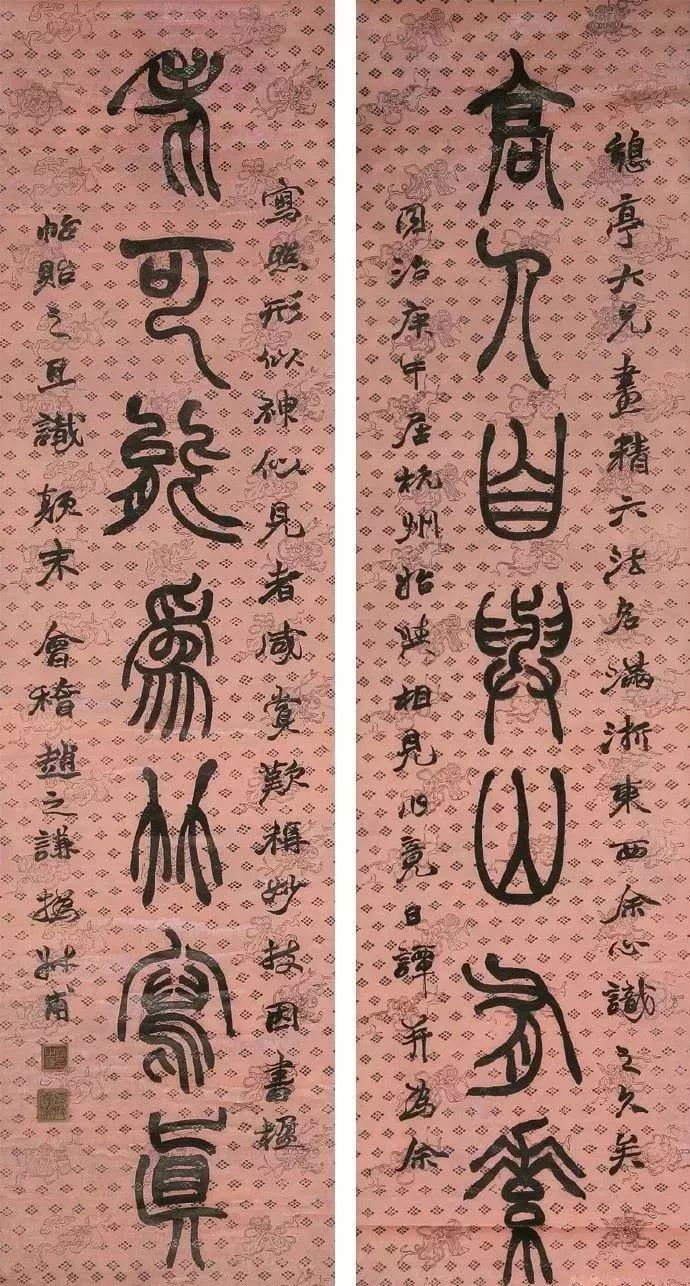 憩亭大兄畫精六法名滿浙東西余心識之久矣
高人自與山有素
同治庚午居杭州始相見竟日譚并為余
寫照形似神似見者咸賞歎稱妙技因書楹
老可能爲竹寫真
帖貽之且識顛末會稽趙之謙撝叔甫